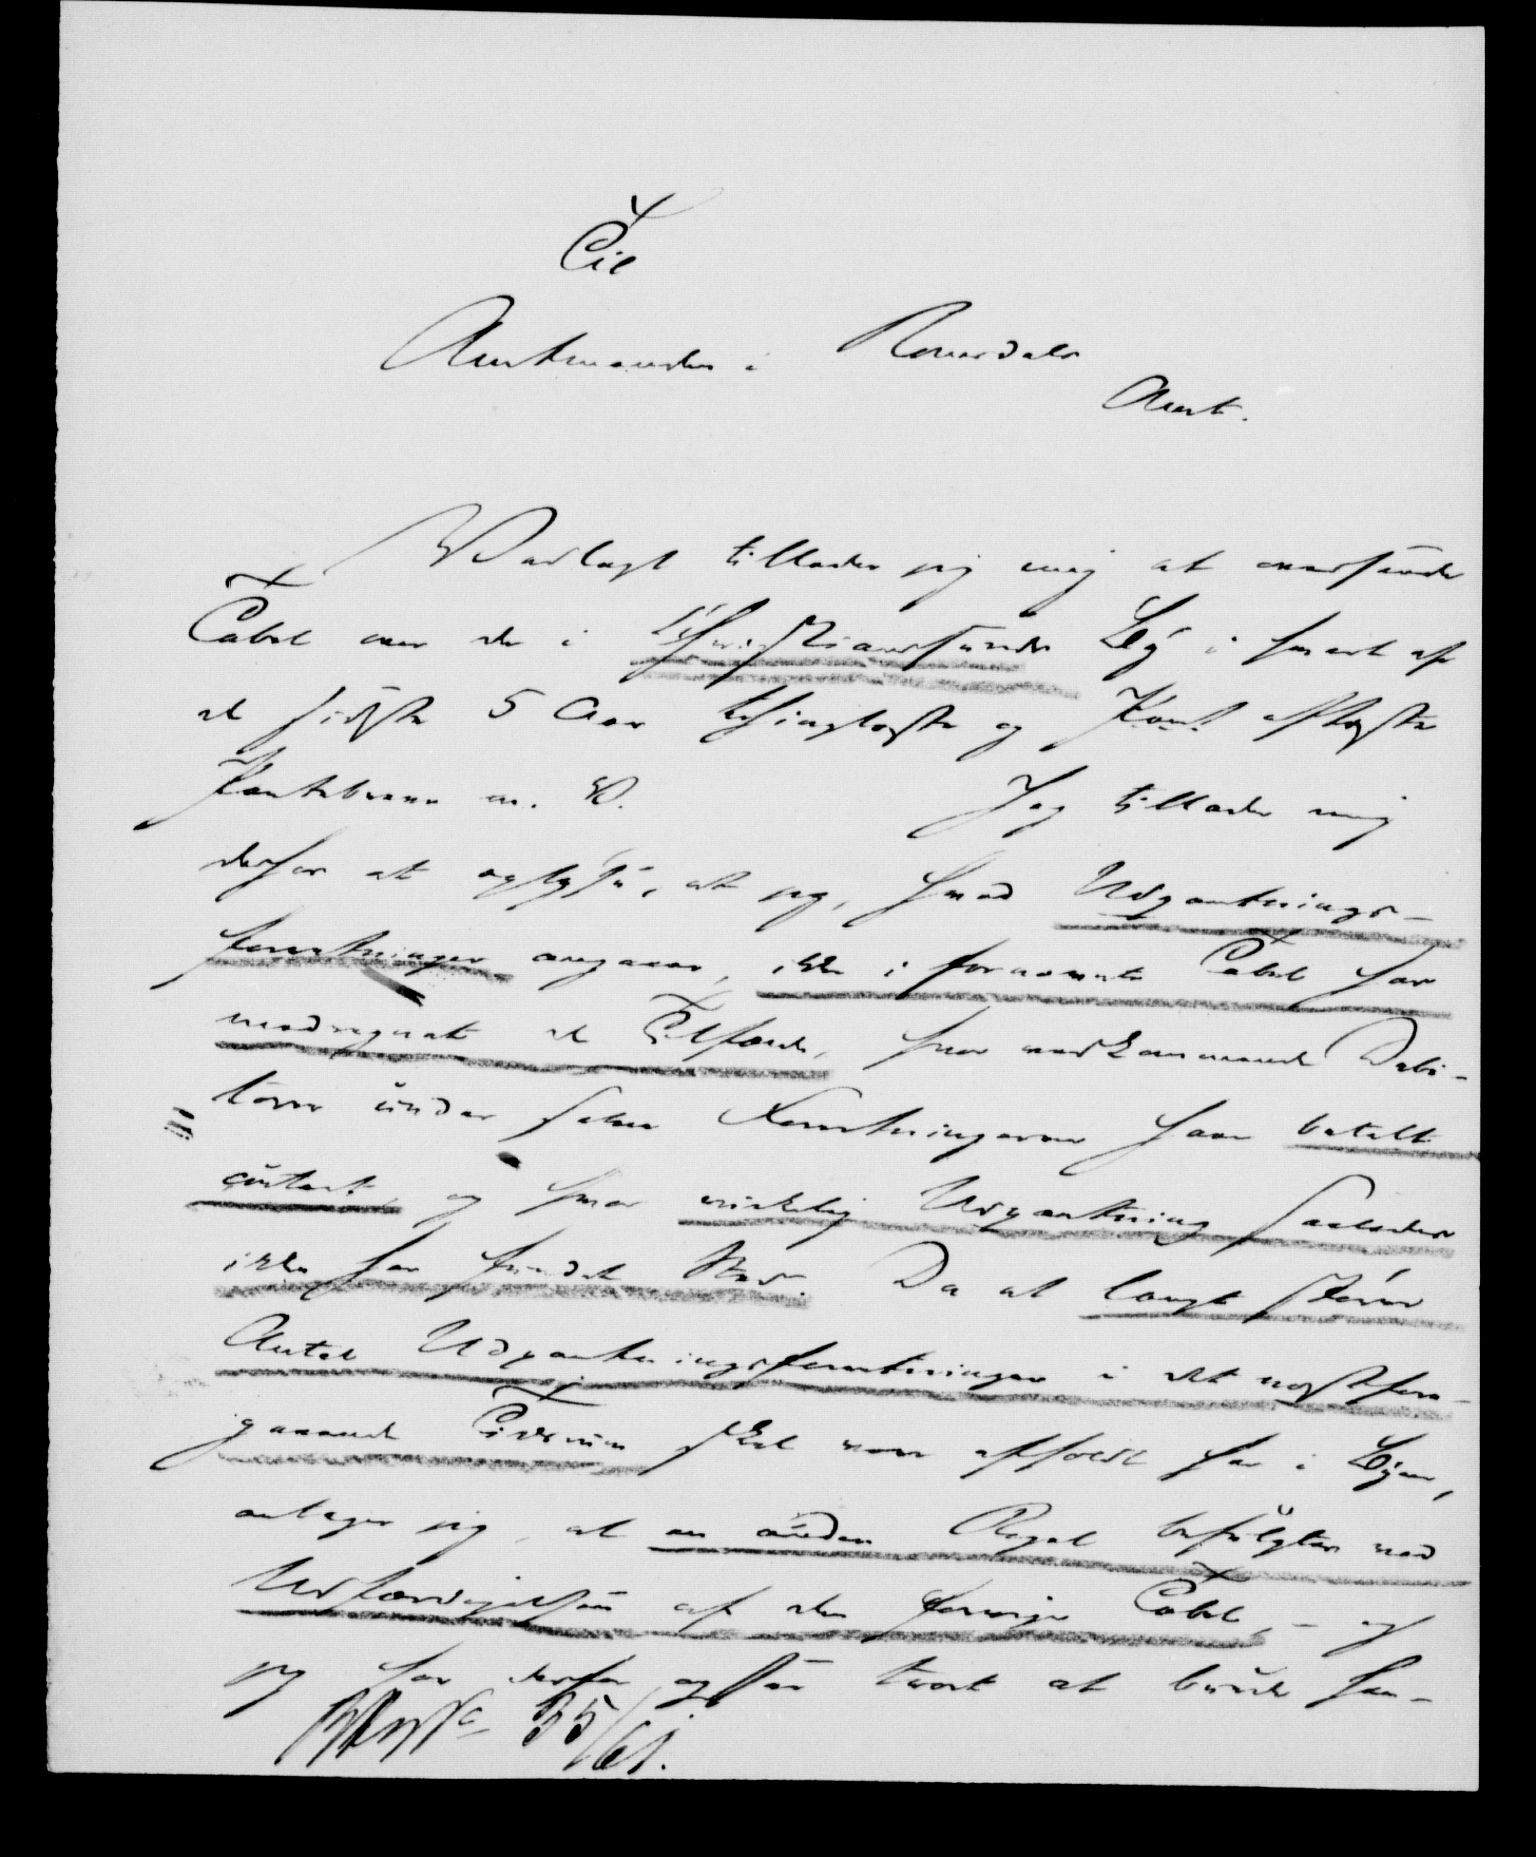 Til
Amtmanden i Romsdals
Amt.
Vedlagt tillader jeg mig at oversende
Tabel over de i Christianssunds By i hvert af
de sidste 5 Aar thinglæste og aflæste
Pantebreve m. V. Jeg tillader mig
derhos at oplyse, at jeg, hvad Udpantnings-
forretninger angaaer, ikke i fornævnte Tabel har
medregnet de Tilfælde, hvor vedkommende Debi-
torer under selve Forretningerne have betalt
contant, og hvor virkelig Udpantning saaledes
ikke har fundet Sted. Da et langt større
Antal Udpantningsforretninger i det næstfore-
gaaende Tidsrum skal være afholdt her i Byen,
antager jeg, at en anden Regel befølgtes ved
Udfærdigelsen af den forrige Tabel, – og
jeg har derfor ogsaa troet at burde hen-
35/61.